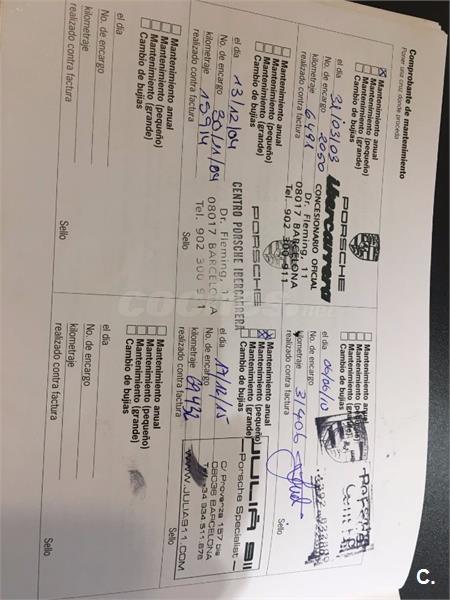 Comprobante de mantenimiento
Poner una cruz donde proceda
Mantenimiento anual
Mantenimiento (pequeño)
Mantenimiento (grande)
Cambio de bujías
el día 31/03/03
No. de encargo 2050
kilometraje 6491
realizado contra factura
PORSCHE
Ibercarrera
CONCESIONARIO OFICIAL
Dr. Fleming, 11
08017 BARCELONA
Tel. 902 300 911
Mantenimiento anual
Mantenimiento (pequeño)
Mantenimiento (grande)
Cambio de bujías
el día 13/12/04
No. de encargo 30/11/04
kilometraje 15914
realizado contra factura
PORSCHE
CENTRO PORSCHE IBERCARRERA
Dr. Fleming, 11
08017 BARCELONA
Tel. 902 300 911
Sello
Mantenimiento anual
Mantenimiento (pequeño)
Mantenimiento (grande)
Cambio de bujías
el día
No. de encargo
kilometraje
realizado contra factura
Sello
Mantenimiento anual
Mantenimiento (pequeño)
Mantenimiento (grande)
Cambio de bujías
el día 05/06/10
No. de encargo
kilometraje 31406
realizado contra factura
Sello
Mantenimiento anual
Mantenimiento (pequeño)
Mantenimiento (grande)
Cambio de bujías
el día 17/12/15
No. de encargo
kilometraje 69432
realizado contra factura
JULIÀ 911
Porsche Specialist
C/ Provenza 157 bis
08036 BARCELONA
Tel. +34 934 511 878
WWW.JULIA911.COM
Sello
Mantenimiento anual
Mantenimiento (pequeño)
Mantenimiento (grande)
Cambio de bujías
el día
No. de encargo
kilometraje
realizado contra factura
Sello
coches.net
C.